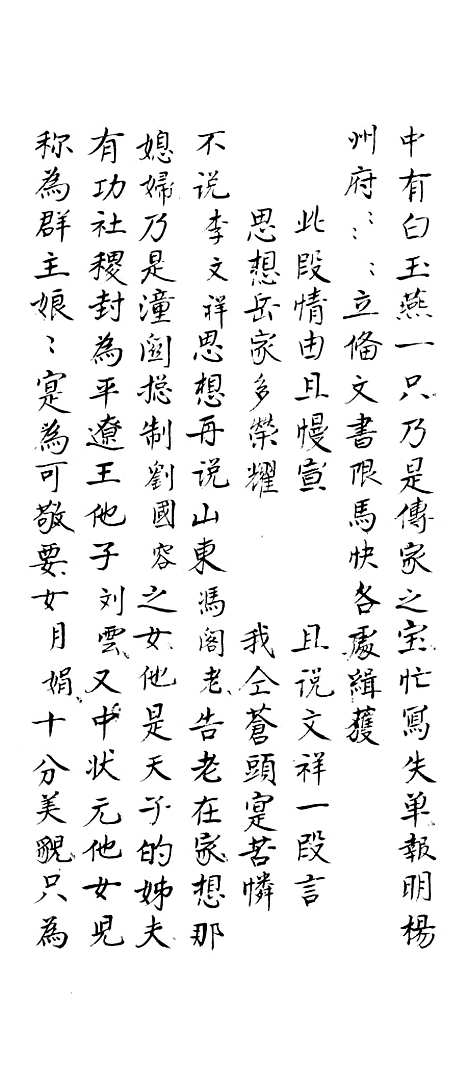 中有白玉燕一只乃是傳家之宝忙寫失单報明楊
州府〻〻立俻文書限馬快各處緝獲
此段情由且慢宣　且说文祥一段言
思想岳家多榮耀　我仝蒼頭寔苦憐
不说李文祥思想再说山東馮阁老告老在家想那
媳婦乃是潼関揔制劉國容之女他是天子的姊夫
有功社稷封為平遼王他子刘雲又中状元他女児
称為群主娘〻寔為可敬要女月娟十分美貌只為